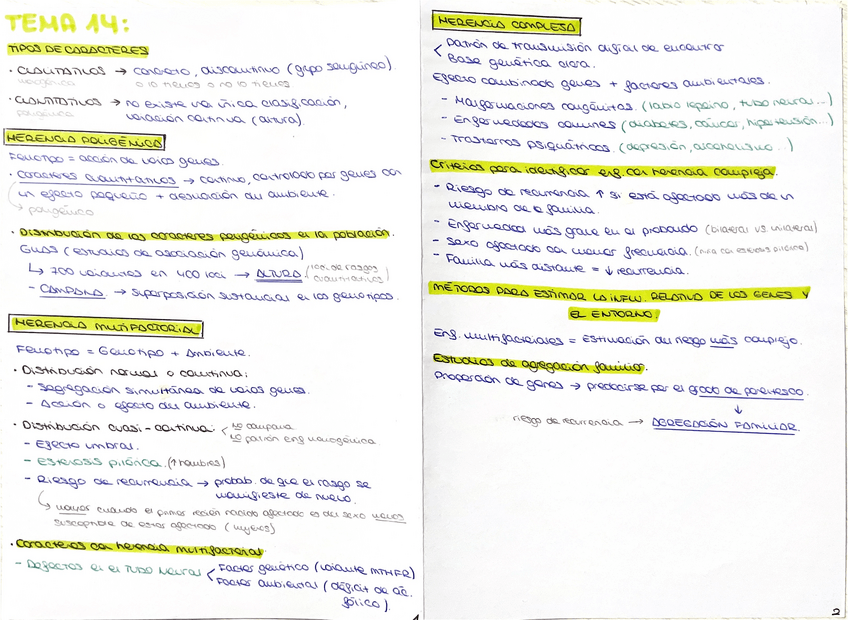 TEMA 14:
TIPOS DE CARACTERES
· CUALITATIVOS → concreto, discontinuo (grupo sanguíneo).
monogénica o lo tienes o no lo tienes
· CUANTITATIVOS → no existe una única clasificación,
poligénica variación continua (altura).
HERENCIA POLIGÉNICA
Fenotipo = acción de varios genes.
· Caracteres cuantitativos → continuo, controlado por genes con
un efecto pequeño + actuación del ambiente.
→ poligénico
· Distribución de los caracteres poligénicos en la población.
GWAS (estudios de asociación genómica)
↳ 700 variantes en 400 loci → ALTURA (loci de rasgos cuantitativos)
- CAMPANA → superposición sustancial en los genotipos.
HERENCIA MULTIFACTORIAL
Fenotipo = Genotipo + Ambiente.
· Distribución normal o continua:
- Segregación simultánea de varios genes.
- Acción o efecto del ambiente.
· Distribución cuasi-continua: < no campana
no patrón enf monogénica
- Efecto umbral.
- Estenosis pilórica. (↑ hombres)
- Riesgo de recurrencia → probab. de que el rasgo se
manifieste de nuevo.
↳ mayor cuando el primer recién nacido afectado es del sexo menos
susceptible de estar afectado (mujeres)
· Caracteres con herencia multifactorial
- Defectos en el Tubo Neural < Factor genético (variante MTHFR)
Factor ambiental (déficit de ác.
fólico).
1
HERENCIA COMPLEJA
< Patrón de transmisión difícil de encontrar
Base genética clara.
Efecto combinado genes + factores ambientales.
- Malformaciones congénitas. (labio leporino, tubo neural...)
- Enfermedades comunes (diabetes, cáncer, hipertensión...)
- Trastornos psiquiátricos. (depresión, alcoholismo...)
Criterios para identificar enf. con herencia compleja.
- Riesgo de recurrencia ↑ si está afectado más de un
miembro de la familia.
- Enfermedad más grave en el probando (bilateral vs. unilateral)
- Sexo afectado con menor frecuencia. (niña con estenosis pilórica)
- Familia más distante = ↓ recurrencia.
MÉTODOS PARA ESTIMAR LA INFLU. RELATIVA DE LOS GENES Y
EL ENTORNO.
Enf. multifactoriales = estimación del riesgo más complejo.
Estudios de agregación familiar.
Proporción de genes → predecirse por el grado de parentesco.
↓
riesgo de recurrencia → AGREGACIÓN FAMILIAR.
2